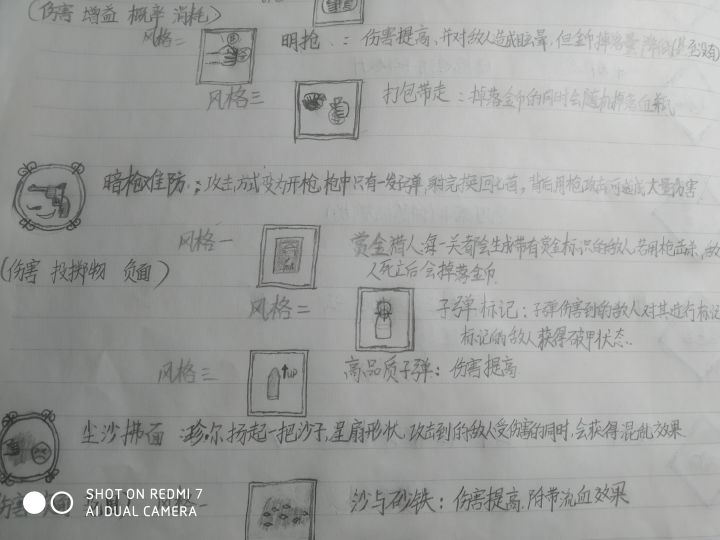 (伤害 增益 概率 消耗)
风格二 明抢：伤害提高，并对敌人造成眩晕，但金币掉落量降低(甚至没有)
风格三 打包带走：掉落金币的同时会随机掉落血瓶
暗枪难防：攻击方式变为开枪，枪中只有一发子弹，背后用枪攻击可造成大量伤害.
风格一 赏金猎人 每一关都会生成带有赏金标识的敌人 若用枪击杀，敌
(伤害 投掷物 负面)
人死亡后会掉落金币.
风格二 子弹标记：子弹伤害到的敌人对其进行标记
标记的敌人获得破甲状态..
风格三 UP 高品质子弹：伤害提高
尘沙拂面：珍尔扬起一把沙子，呈扇形状，攻击到的敌人受伤害的同时，会获得混乱效果
伤害
沙与砂铁：伤害提高.附带流血效果
SHOT ON REDMI 7
AI DUAL CAMERA